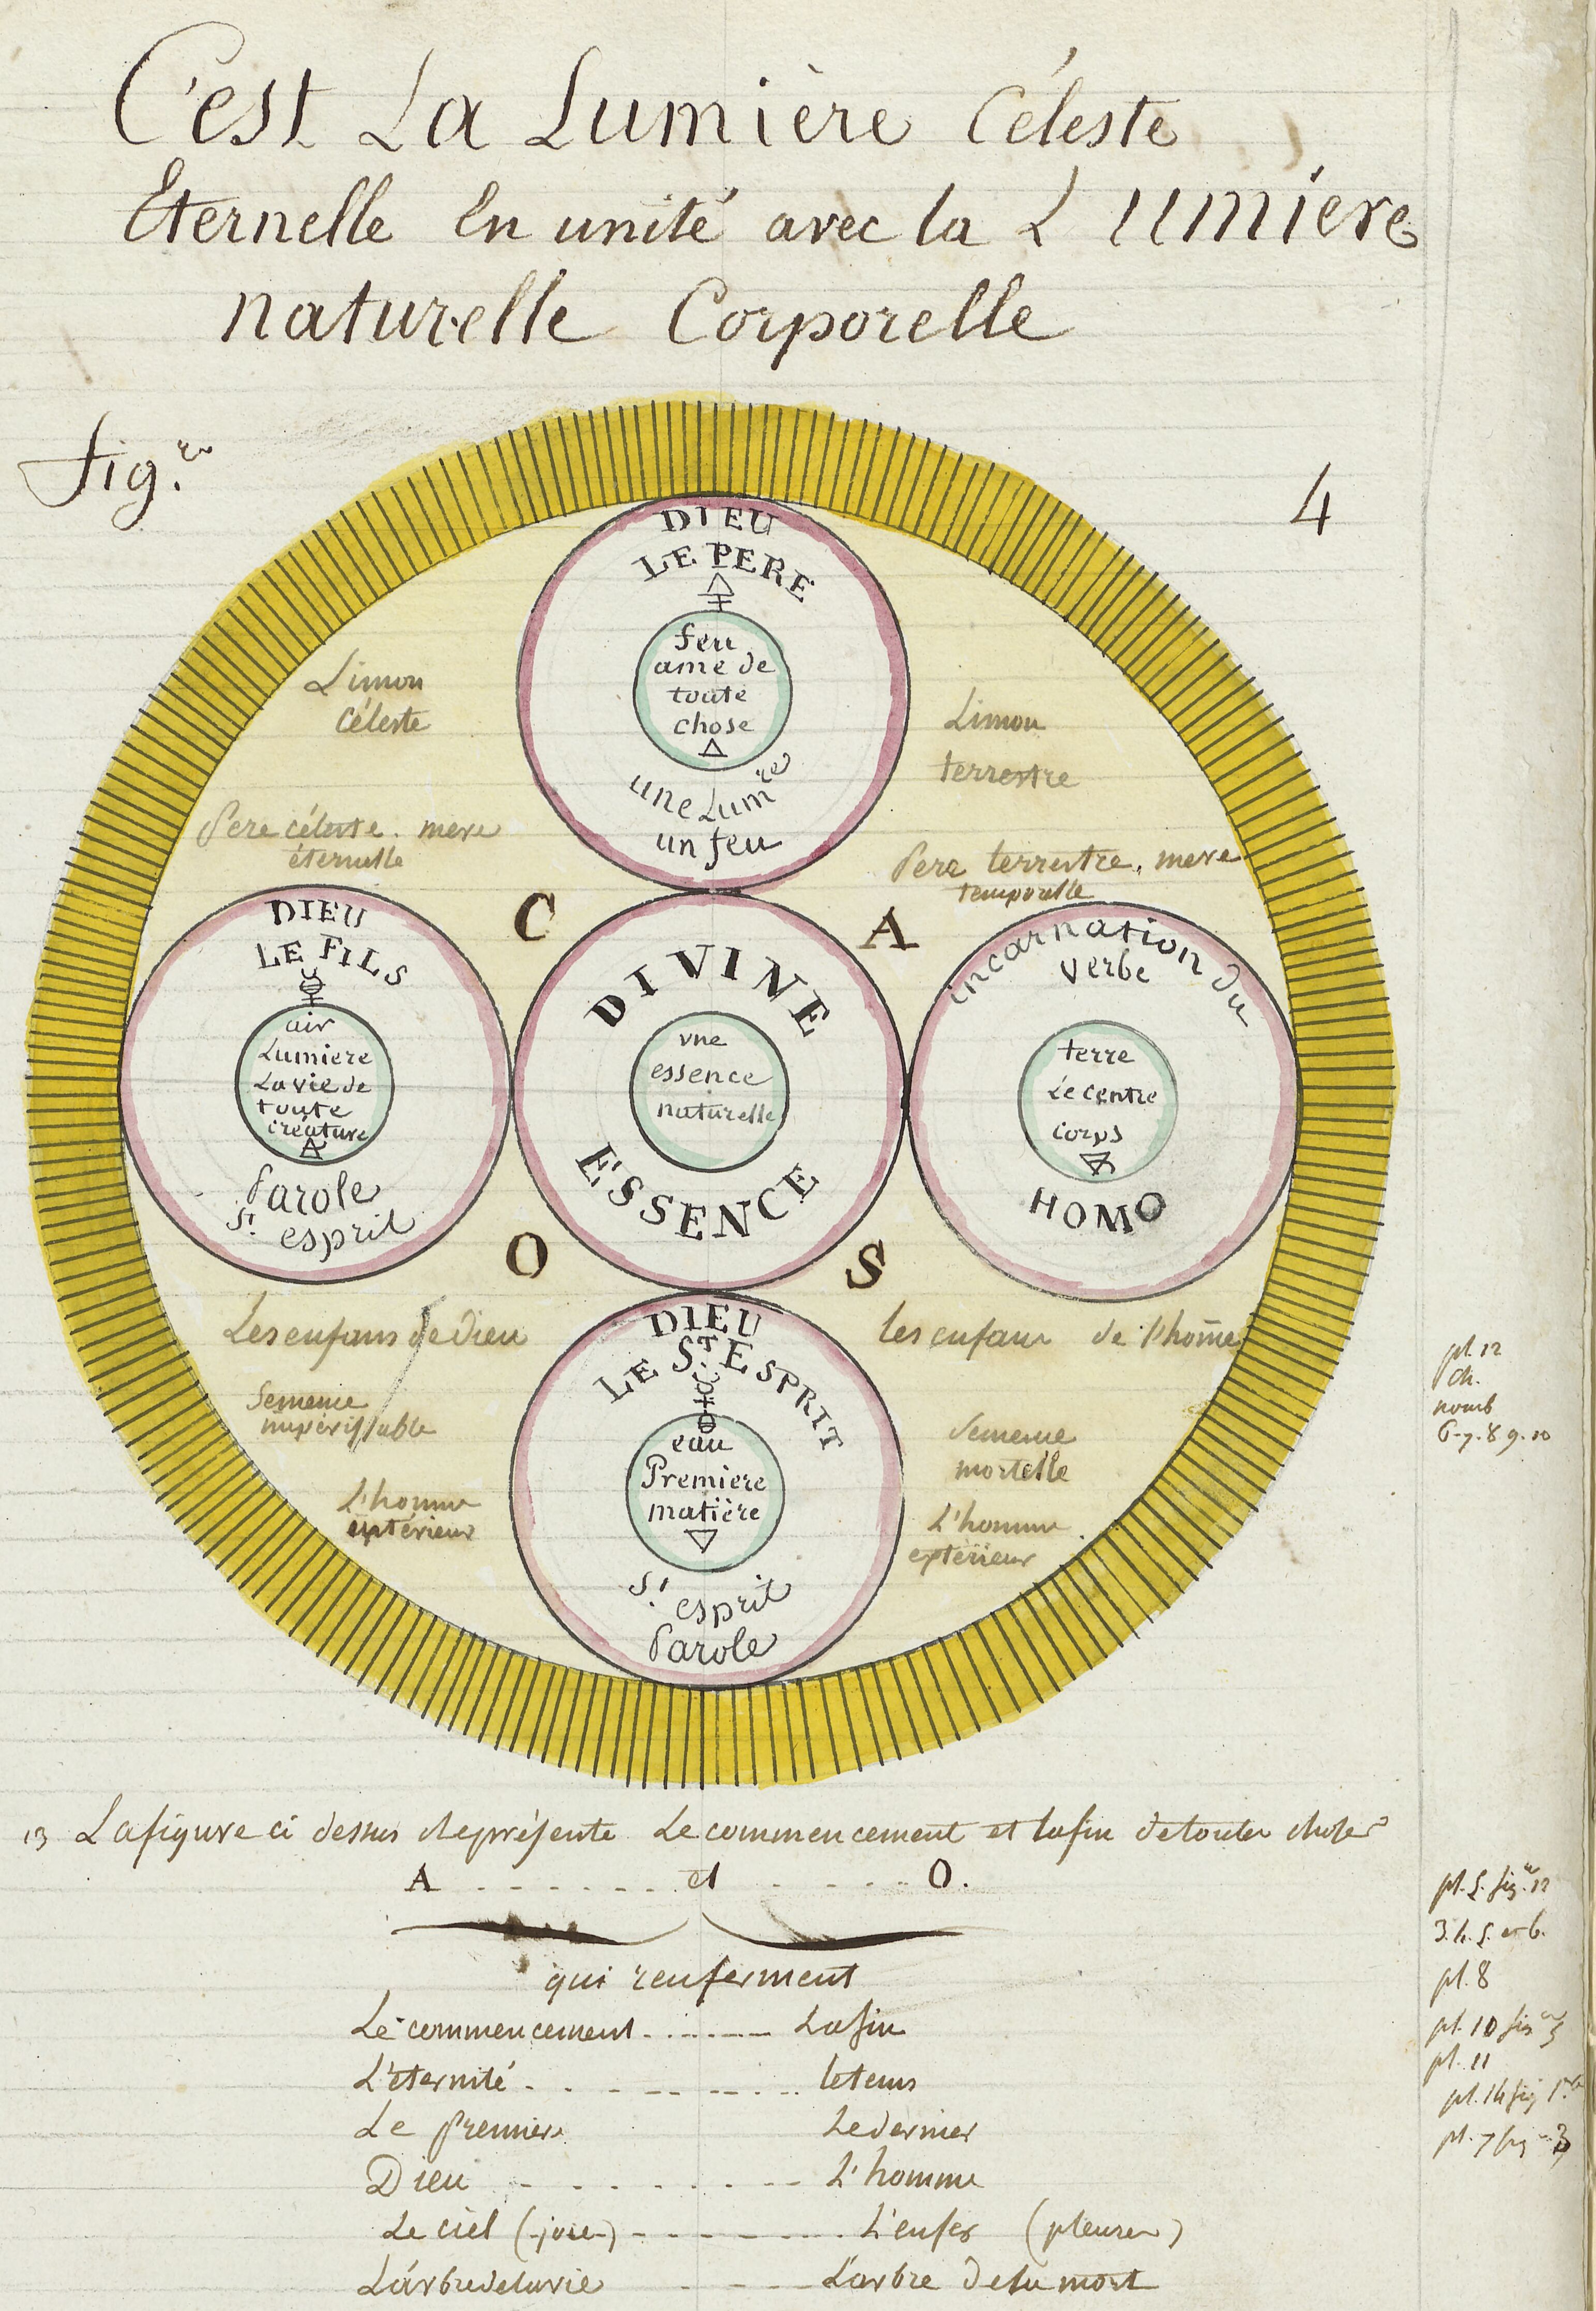 C'est La Lumière Céleste
Eternelle En unité avec la Lumiere
naturelle Corporelle
fig.re
4
DIEU
LE PERE
feu
ame de
toute
chose
une Lumre
un feu
Limon
Céleste
Limon
terrestre
Pere céleste. mere
éternelle
Pere terrestre, mere
temporelle
C
A
DIEU
LE FILS
air
Lumiere
La vie de
toute
créature
Parole
St esprit
DIVINE
vne
essence
naturelle
ESSENCE
incarnation du
verbe
terre
Le centre
corps
HOMO
O
S
Les enfans de Dieu
les enfans de l'home
DIEU
LE ST ESPRIT
eau
Premiere
matière
St esprit
Parole
Semence
impérissable
Semence
mortelle
L'homme
L'homme
extérieur
pl. 12
ch.
nomb
6-7-8 9-10
13 La figure ci dessus représente Le commencement et la fin de toutes choses
A . . . . . . . et . . . . . . O.
qui renferment
Le commencement . . . . . . . La fin
L'éternité . . . . . . . le tems
Le Premier Le dernier
Dieu . . . . . . . L'homme
Le ciel (joie) . . . . . . . L'enfer (pleurer)
L'arbre de la vie . . . . L'arbre de la mort
pl. 5. fig.re 12
3. 4. 5. et 6.
pl. 8
pl. 10 fig.re 3
pl. 11
pl. 14 fig 1.re
pl. 7 fig 3